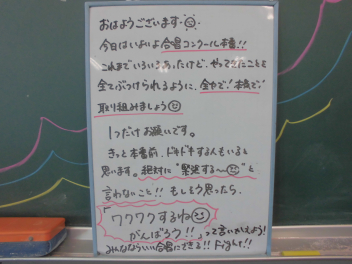 おはようございます
今日はいよいよ合唱コンクール本番!!
これまでいろいろあったけど、やってきたことを
全てぶつけられるように、全力で!本気で!
取り組みましょう
1つだけお願いです。
きっと本番前、ドキドキする人もいると
思います。絶対に"緊張する〜"と
言わないこと!!もしそう思ったら、
「ワクワクするね
がんばろウ!!」って言いましょう!
みんなならいい合唱にできる!!Fight!!